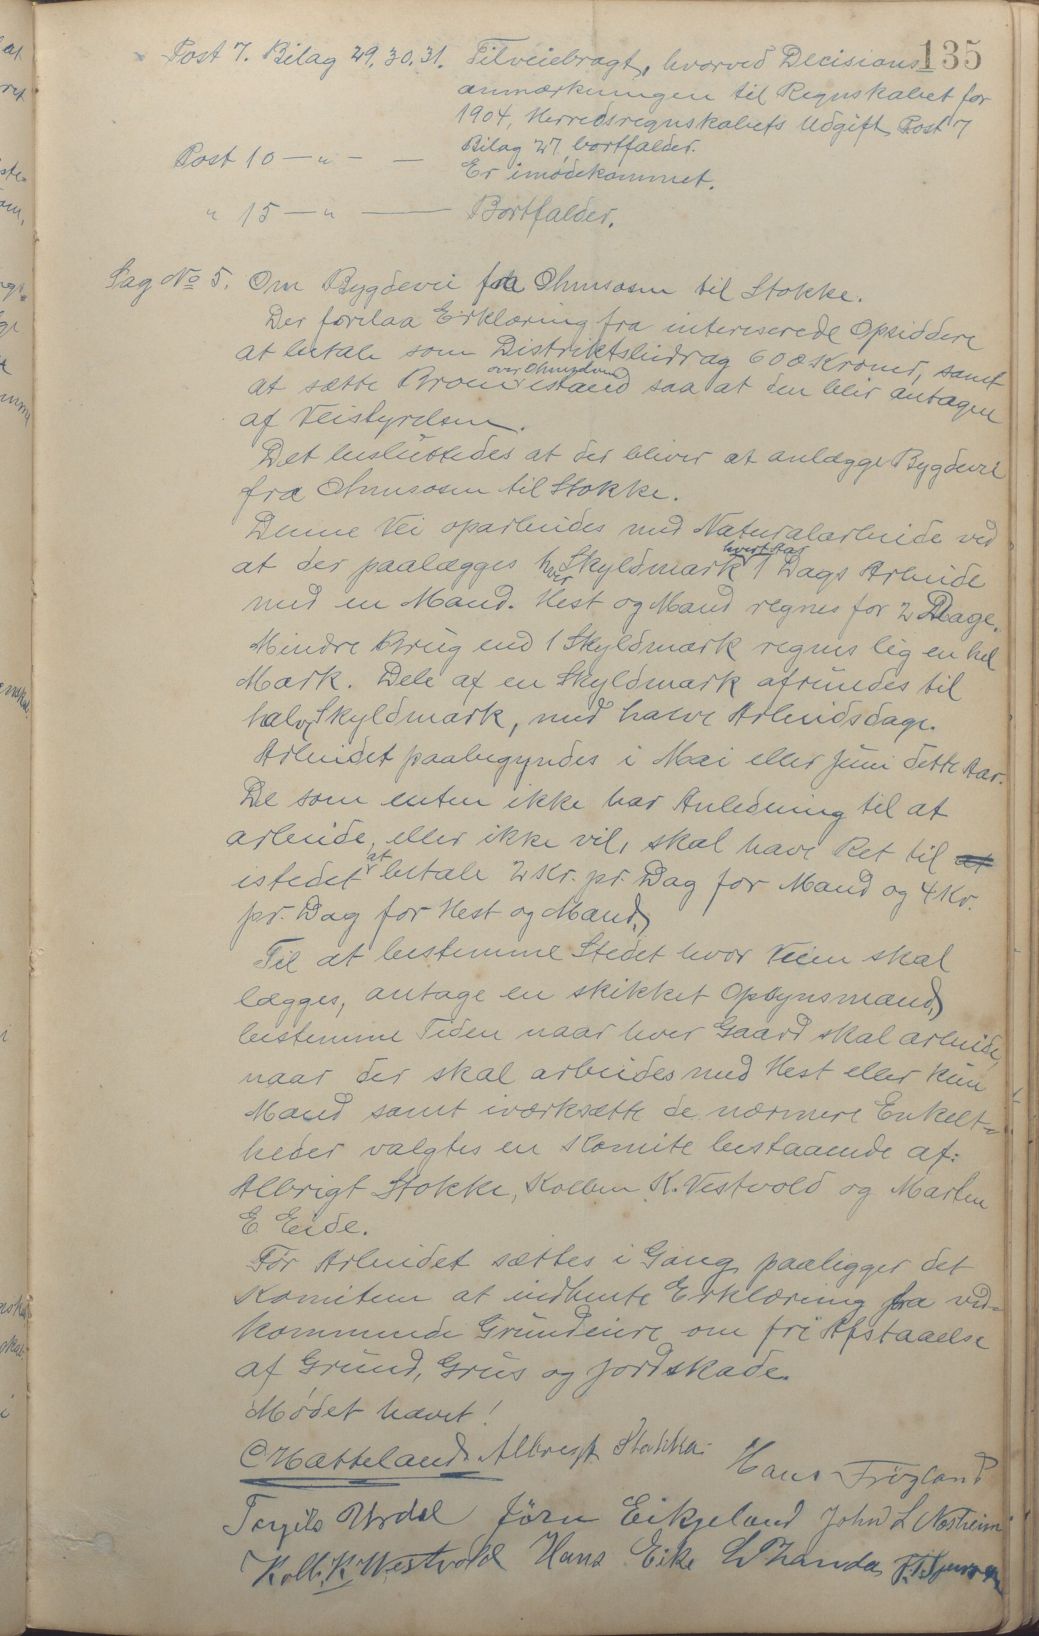 135
Post 7. Bilag 29. 30. 31. Tilveiebragt, hvorved Decisions
anmærkningen til Regnskabet for
1904, Herredsregnskabets Udgift, Post 7
Bilag 27, bortfalder.
Post 10 — " — — Er imødekommet.
" 15 — " — Bortfalder.
Sag No 5. Om Bygdevei fra Ohmsosen til Stokke.
Der forelaa Erklæring fra intereserede Opsiddere
at betale som Distriktsbidrag 600 Kroner, samt
over
at sætte Broen istand saa at den blir antagen
af Veistyrelsen.
Det besluttedes at der bliver at anlægge Bygdevei
fra Ohmsosen til Stokke.
Denne Vei oparbeides med Naturalarbeide ved
hvert Aar
at der paalægges hver Skyldmark 1 Dags Arbeide
med en Mand. Hest og Mand regnes for 2 Dage.
Mindre Brug end 1 Skyldmark regnes lig en hel
Mark. Dele af en Skyldmark afrundes til
halv Skyldmark, med halve Arbeidsdage.
Arbeidet paabegyndes i Mai eller Juni dette Aar.
De som enten ikke har Anledning til at
arbeide, eller ikke vil, skal have Ret til at
istedet at betale 2 Kr. pr. Dag for Mand og 4 Kr.
pr. Dag for Hest og Mand.
Til at bestemme Stedet hvor Veien skal
lægges, antage en skikket Opsynsmand,
bestemme Tiden naar hver Gaard skal arbeide,
naar der skal arbeides med Hest eller kun
Mand samt iværksætte de nærmere Enkelt-
heder valgtes en Komite bestaaende af:
Albrigt Stokke, Kolben K. Vestvold og Marten
E. Eide.
Før Arbeidet sættes i Gang paaligger det
Komiteen at indhente Erklæring fra ved-
kommende Grundeiere om fri Afstaaelse
af Grund, Grus og Jordskade.
Mødet hævet!
O Hatteland. Albregt Stokka. Hans Frøyland
Torgils Urdal Jörn Eikjeland John L Norheim
Kolb. K. Westvold Hans Eike